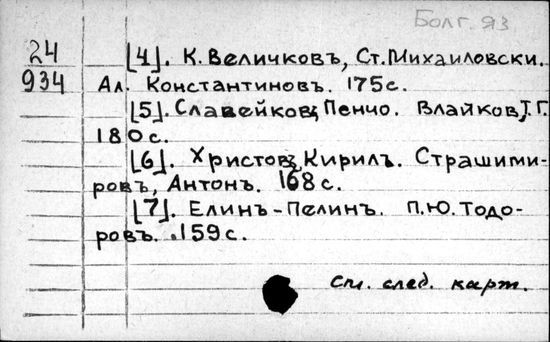 Болг. яз
24 [4]. К. Величковъ, Ст. Михаиловски.
934 Ал. Константиновъ. 175 с.
[5]. Славейковъ, Пенчо. Влайков, Т. Г.
180 с.
[6]. Христовъ, Кирилъ. Страшими-
ровъ, Антонъ. 168 с.
[7]. Елинъ-Пелинъ. П. Ю. Тодо-
ровъ. 159 с.
См. след. карт.